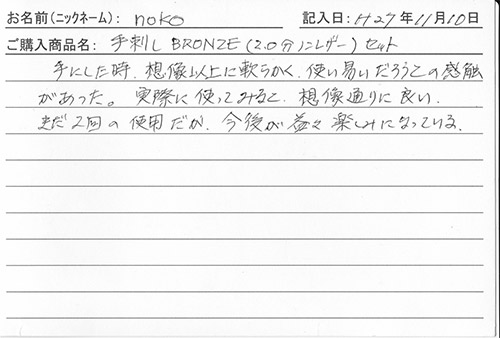 お名前(ニックネーム): noko 記入日:H27年11月10日
ご購入商品名: 手刺し BRONZE (2.0分ミニレザー) セット
手にした時、想像以上に軟らかく、使い易いだろうとの感触
があった。実際に使ってみると、想像通りに良い。
まだ2回の使用だが、今後が益々楽しみになっている。